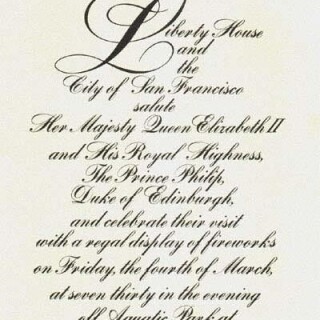 Liberty House
and
the
City of San Francisco
salute
Her Majesty Queen Elizabeth II
and His Royal Highness,
The Prince Philip,
Duke of Edinburgh,
and celebrate their visit
with a regal display of fireworks
on Friday, the fourth of March,
at seven thirty in the evening
off Aquatic Park at